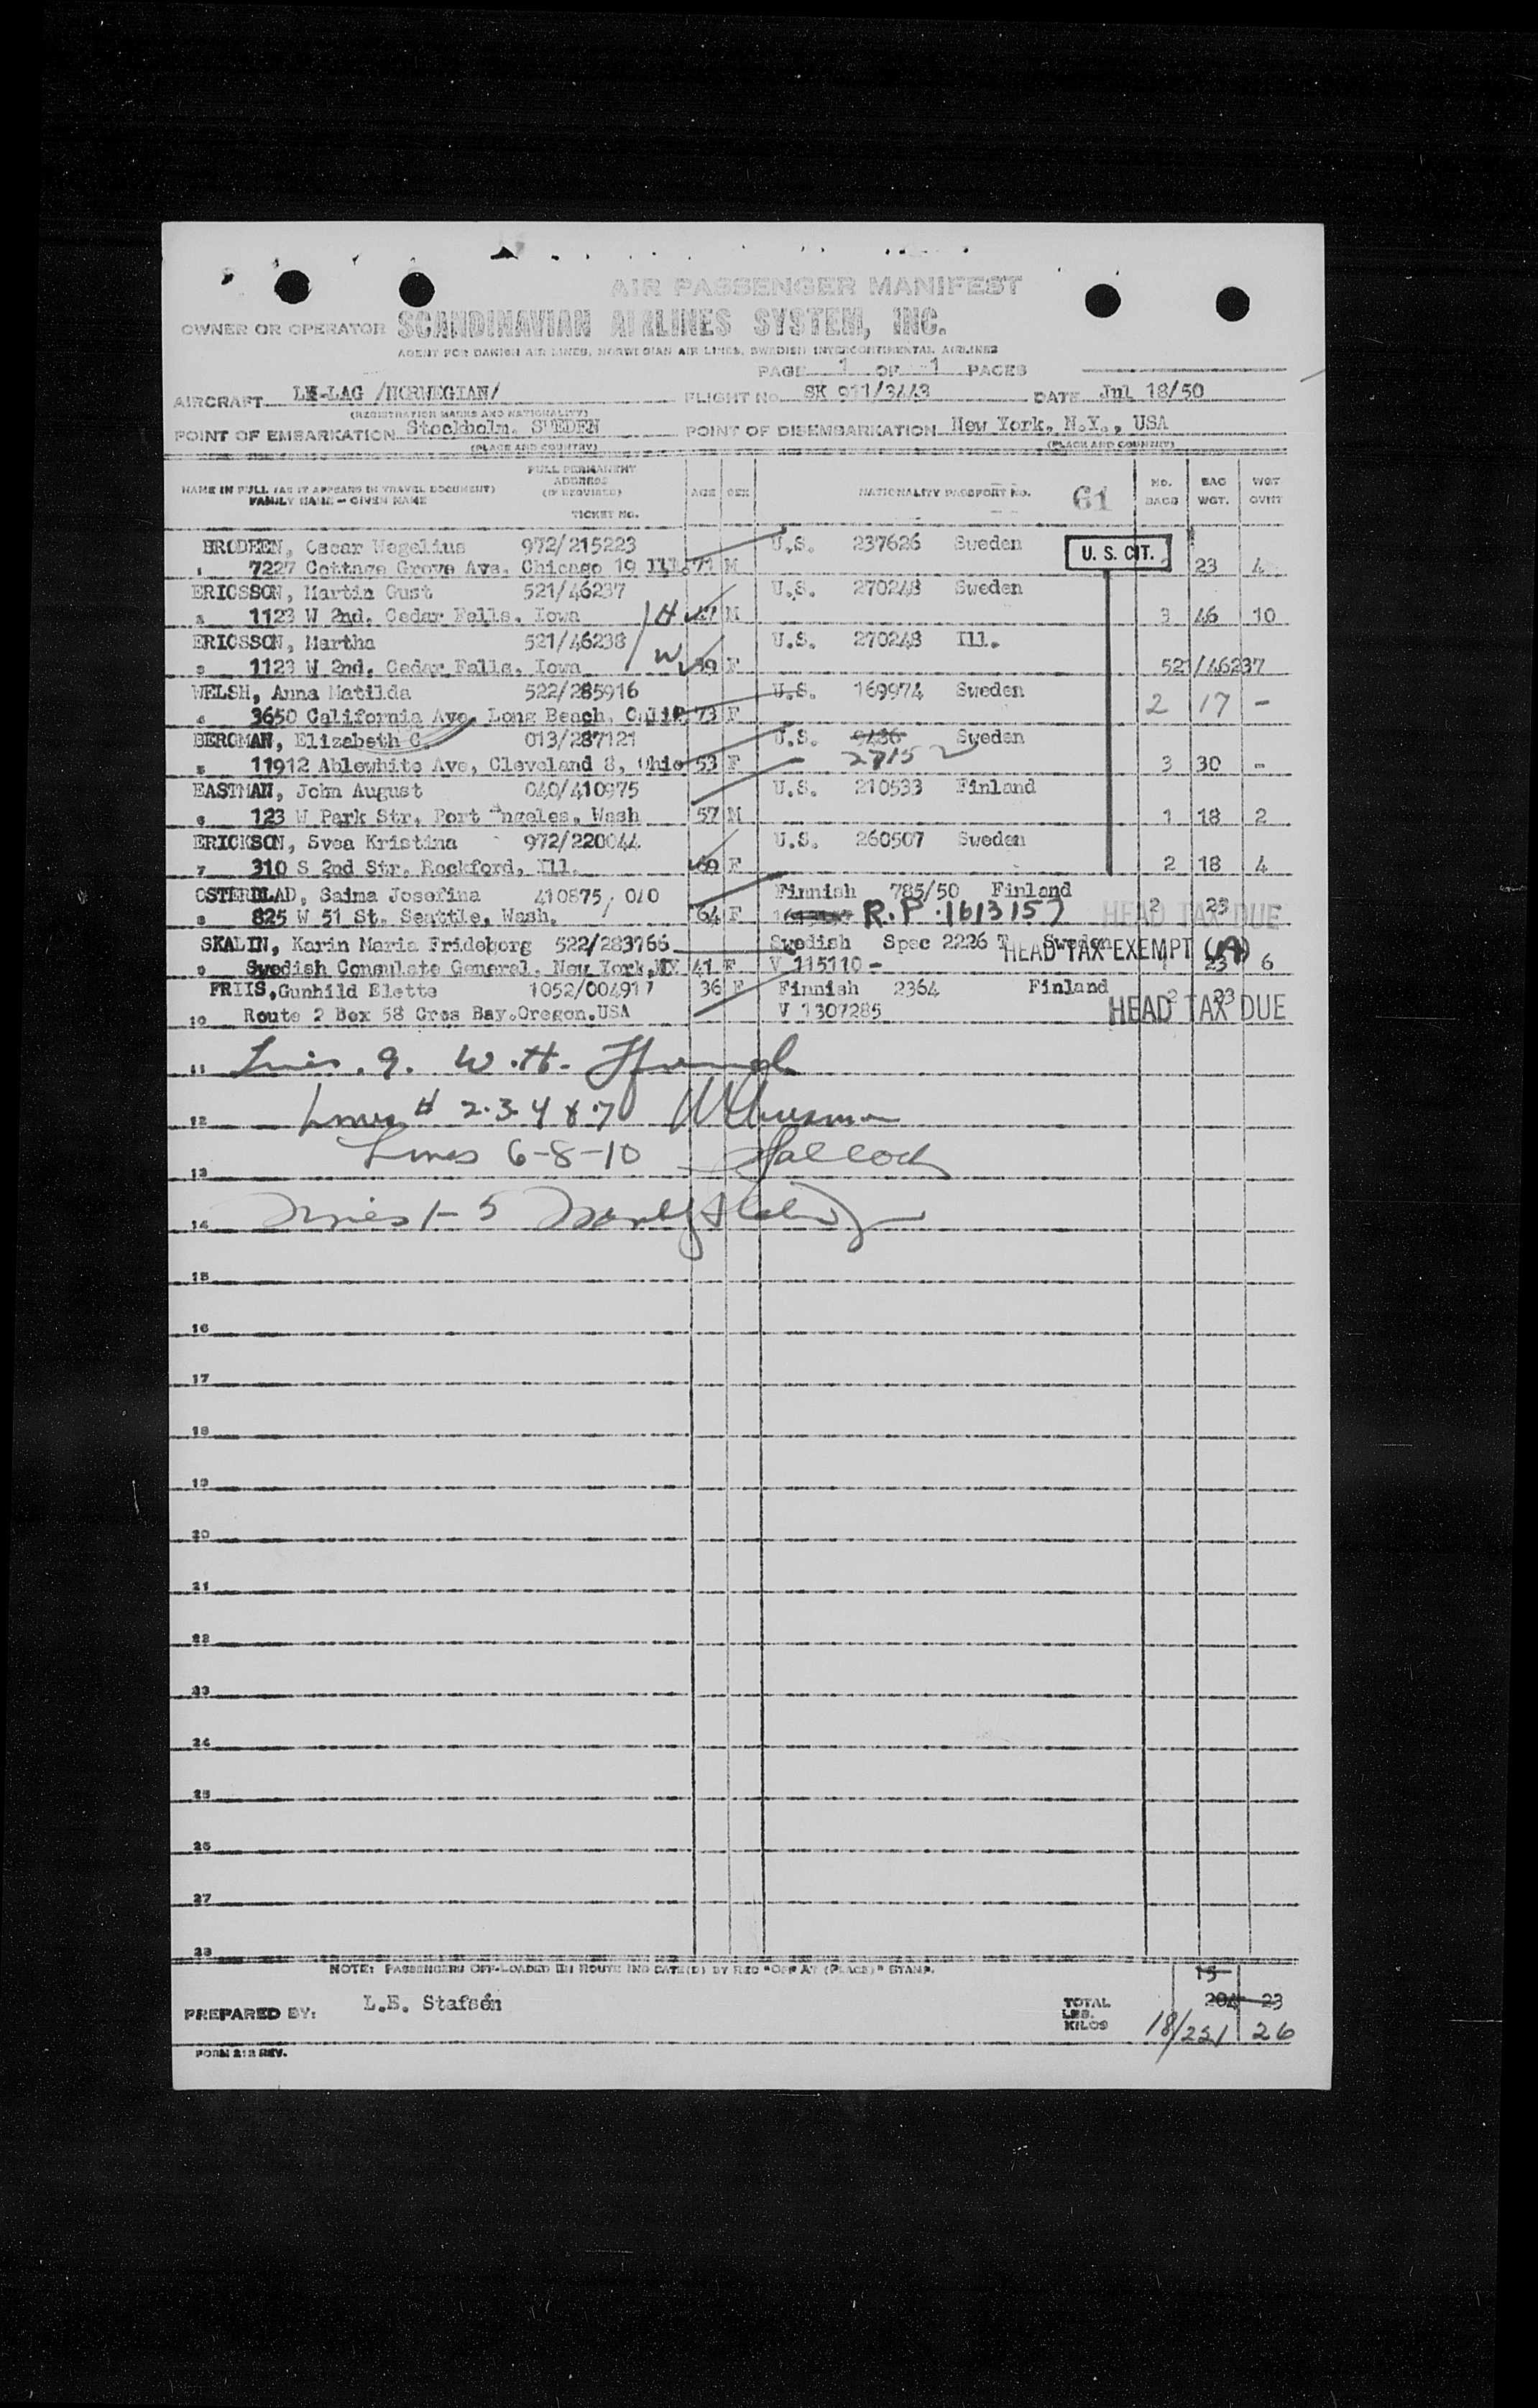 AIR PASSENGER MANIFEST
OWNER OR OPERATOR SCANDINAVIAN AIRLINES SYSTEM, INC.
AGENT FOR DANISH AIR LINES, NORWEGIAN AIR LINES, SWEDISH INTERCONTINENTAL AIRLINES
PAGE 1 OF 1 PAGES
AIRCRAFT LN-LAG /NORWEGIAN/ FLIGHT NO. SK 911/3443 DATE Jul 18/50
(REGISTRATION MARKS AND NATIONALITY)
POINT OF EMBARKATION Stockholm. SWEDEN POINT OF DISEMBARKATION New York, N.Y., USA
(PLACE AND COUNTRY) (PLACE AND COUNTRY)
NAME IN FULL (AS IT APPEARS IN TRAVEL DOCUMENT) FAMILY NAME - GIVEN NAME FULL PERMANENT ADDRESS (IF REQUIRED) TICKET NO. AGE SEX NATIONALITY PASSPORT NO. 61 NO. BAGS BAG WGT. WGT OVWT
BRODEEN, Oscar Wegelius 972/215223 U.S. 237626 Sweden U. S. CIT.
1 7227 Cottage Grove Ave. Chicago 19 Ill. 71 M 23 4
ERICSSON, Martin Gust 521/46237 U.S. 270248 Sweden
2 1123 W 2nd. Cedar Falls. Iowa H M 3 46 10
ERICSSON, Martha 521/46238 U.S. 270248 Ill.
3 1123 W 2nd. Cedar Falls. Iowa W 39 F 521/46237
WELSH, Anna Matilda 522/285916 U.S. 169974 Sweden
4 3650 California Ave. Long Beach. Calif. 73 F 2 17 -
BERGMAN, Elizabeth C. 013/287121 U.S. 9486 Sweden
5 11912 Ablewhite Ave, Cleveland 8, Ohio 53 F 3 30 -
EASTMAN, John August 040/410975 U.S. 210533 Finland
6 123 W Park Str. Port Angeles. Wash 57 M 1 18 2
ERICKSON, Svea Kristina 972/220044 U.S. 260507 Sweden
7 310 S 2nd Str. Rockford, Ill. 69 F 2 18 4
OSTERBLAD, Saima Josefina 410875/ 040 Finnish 785/50 Finland
8 825 W 51 St. Seattle, Wash. 64 F R.P. 1613157 HEAD TAX DUE 2 23
SKALIN, Karin Maria Frideborg 522/283766 Swedish Spec 2226 T Sweden HEAD TAX EXEMPT (A)
9 Swedish Consulate General. New York, NY 41 F V 115110 - 1 23 6
FRIIS, Gunhild Elette 1052/004917 36 F Finnish 2364 Finland 2 23
10 Route 2 Box 58 Cros Bay. Oregon. USA V 1307285 HEAD TAX DUE
11 Lines. 9. W. H.
12 Lines # 2.3.4 & 7
13 Lines 6-8-10 Hallock
14 Lines 1-5
15
16
17
18
19
20
21
22
23
24
25
26
27
28
NOTE: PASSENGERS OFF-LOADED EN ROUTE INDICATE(D) BY RED "OFF AT (PLACE)" STAMP.
15
PREPARED BY: L.E. Stafsén TOTAL LBS. KILOS 204 23
18/221 26
FORM 212 REV.